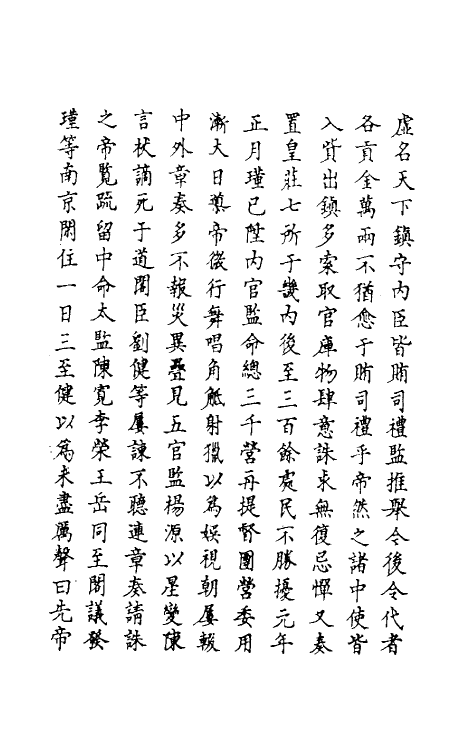 虛名天下鎮守内臣皆賄司禮監推舉令後令代者
各貢金萬兩不猶愈于賄司禮乎帝然之諸中使皆
入貲出鎮多索取官庫物肆意誅求無復忌憚又奏
置皇莊七所于畿内後至三百餘處民不勝擾元年
正月瑾已陞内官監命總三千營再提督團營委用
漸大日導帝微行舞唱角觝射獵以為娛視朝屢輟
中外章奏多不報災異疊見五官監楊源以星變陳
言杖謫死于道閣臣劉健等屢諫不聽連章奏請誅
之帝覽疏留中命太監陳寬李榮王岳同至閣議發
瑾等南京閑住一日三至健以為未盡厲聲曰先帝